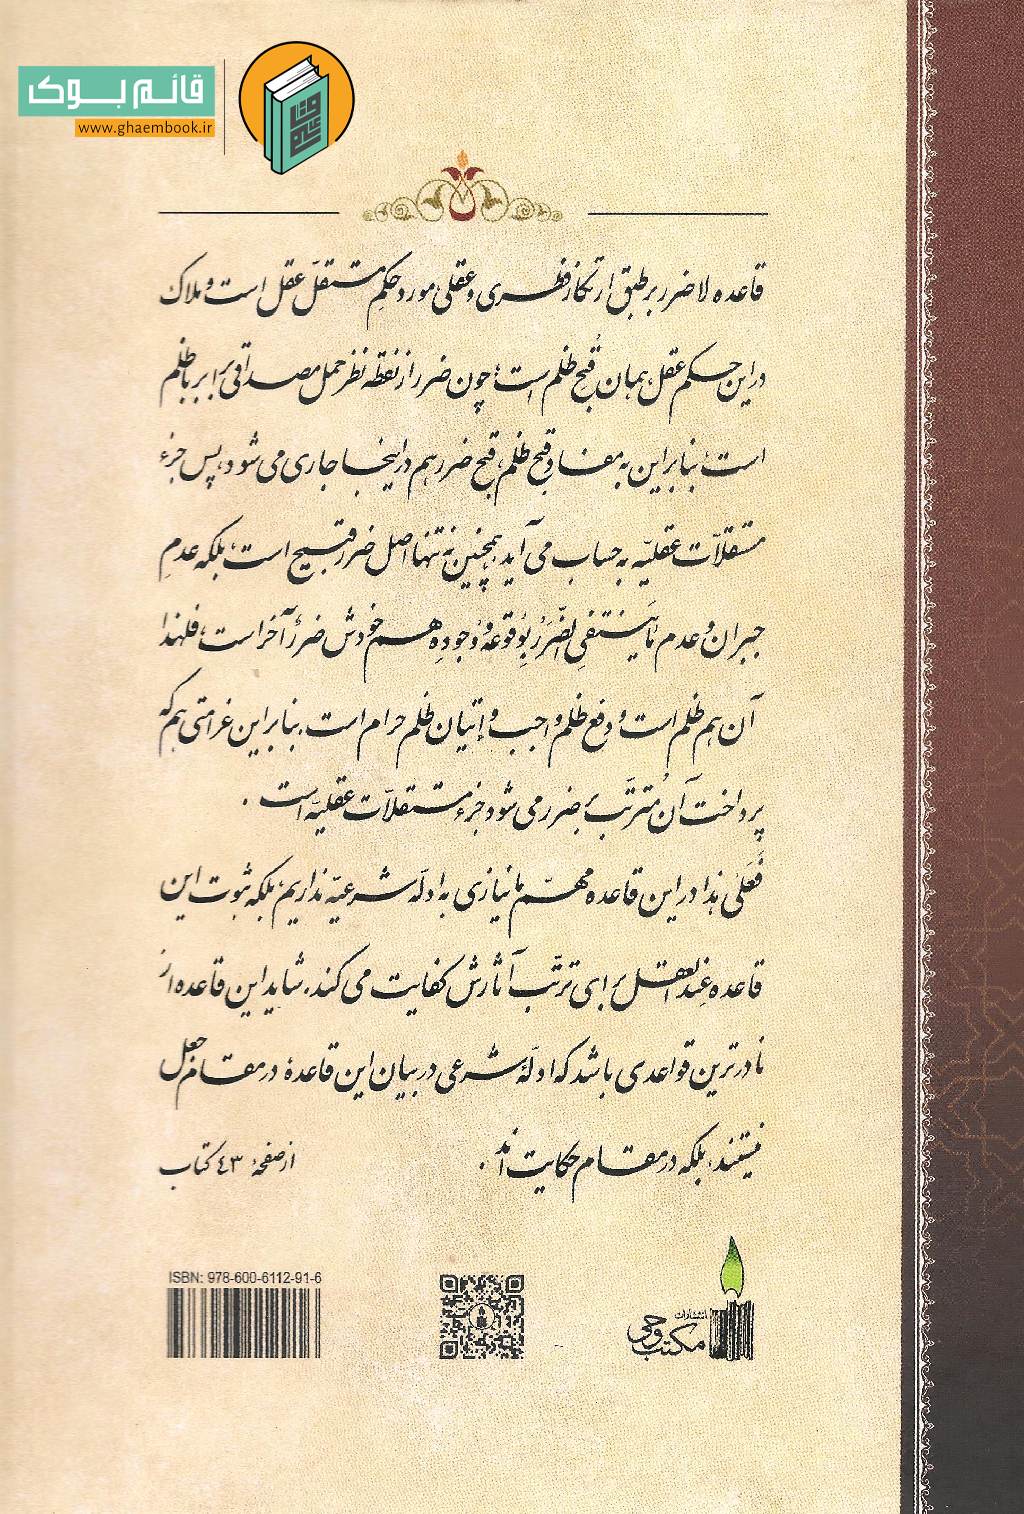 قائم بوک
www.ghaembook.ir
قاعده لاضرر بر طبق ارتکاز فطری و عقلی مورد حکمِ مستقلّ عقل است و ملاک
در این حکم عقل، همان قُبح ظلم است؛ چون ضرر از نقطه نظر حمل مصداقی برابر با ظلم
است؛ بنابراین به مفاد قبح ظلم، قبح ضرر هم در اینجا جاری می‌شود، پس جزء
مستقلّات عقلیّه به حساب می‌آید، همچنین نه تنها اصل ضرر قبیح است؛ بلکه عدمِ
جبران و عدم ما یَنتفی الضّررُ بِوُقوعه و وُجودِه هم خودش ضررٌ آخر است؛ فلهذا
آن هم ظلم است و دفع ظلم واجب و إتیان ظلم حرام است. بنابراین غرامتی هم که
پرداخت آن مُترتّب بر ضرر می‌شود جزء مستقلّات عقلیّه است.
فَعَلی هذا در این قاعده مهمّ ما نیازی به ادلّه شرعیّه نداریم؛ بلکه ثبوت این
قاعده عِندالعقل برای ترتّب آثارش کفایت می‌کند. شاید این قاعده از
نادرترین قواعدی باشد که ادلّهٔ شرعی در بیان این قاعدهٔ در مقام جعل
نیستند، بلکه در مقام حکایت‌اند.
از صفحهٔ ۴۳ کتاب
ISBN: 978-600-6112-91-6
انتشارات
مکتب وحی